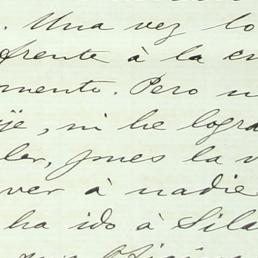 . Una vez lo
frente à la
mento. Pero
ije, ni he logra
ler, pues la v
ver à nadie
ha ido à Sila